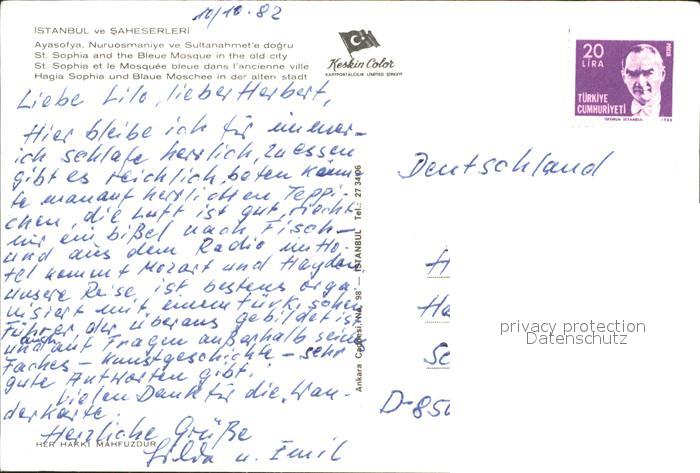 10/10.82
İSTANBUL ve ŞAHESERLERİ
Ayasofya, Nuruosmaniye ve Sultanahmet'e doğru
St. Sophia and the Bleue Mosque in the old city
St. Sophia et le Mosquée bleue dans l'ancienne ville
Hagia Sophia und Blaue Moschee in der alten stadt
Keskin Color
KARTPOSTALCILIK LIMITED ŞİRKETİ
20
LİRA
TÜRKİYE
CUMHURİYETİ
Liebe Lilo, lieber Herbert,
Hier bleibe ich für immer –
ich schlafe herrlich, zu essen
gibt es reichlich, beten könn-
te man auf herrlichen Teppi-
chen, die Luft ist gut, riecht
nur ein bißel nach Fisch –
und aus dem Radio im Ho-
tel kommt Mozart und Haydn,
unsere Reise ist bestens orga-
nisiert mit einem türkischen
Führer der überaus gebildet ist
und auch auf Fragen außerhalb seines
Faches – Kunstgeschichte – sehr
gute Antworten gibt.
Vielen Dank für die Wan-
derkarte.
Herzliche Grüße
Hilda u. Emil
HER HAKKI MAHFUZDUR
Ankara Caddesi No. 98 — İSTANBUL Tel.: 27 34 06
Deutschland
H
Ha
Sc
D-850
privacy protection
Datenschutz